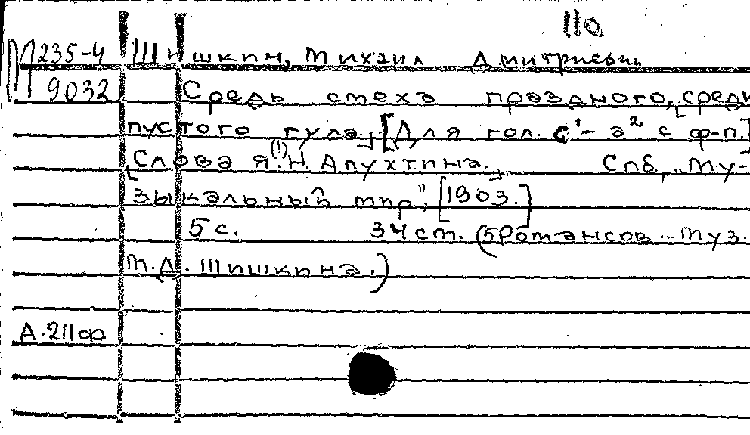 110
М 235-4 Шишкин, Михаил Дмитриевич
9032 Средь смеха праздного, [средь
пустого гула], [Для гол. с¹-а² с ф-п.]
[Слова Я.(!)Н. Апухтина.] Спб, „Му-
зыкальный мир", [1903.]
5 с. 34 см. (5 Романсов... Муз.
М.Д. Шишкина.)
А.211 ор